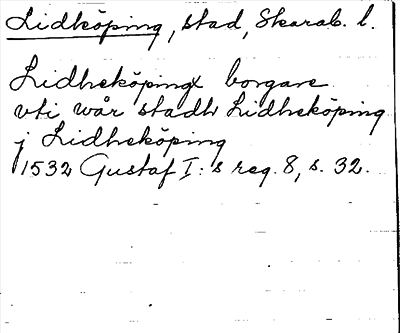 Lidköping, stad, Skarab. l.
Lidheköpingx borgare
vti wår stadh Lidheköping
j Lidheköping
1532 Gustaf I:s reg. 8, s. 32.